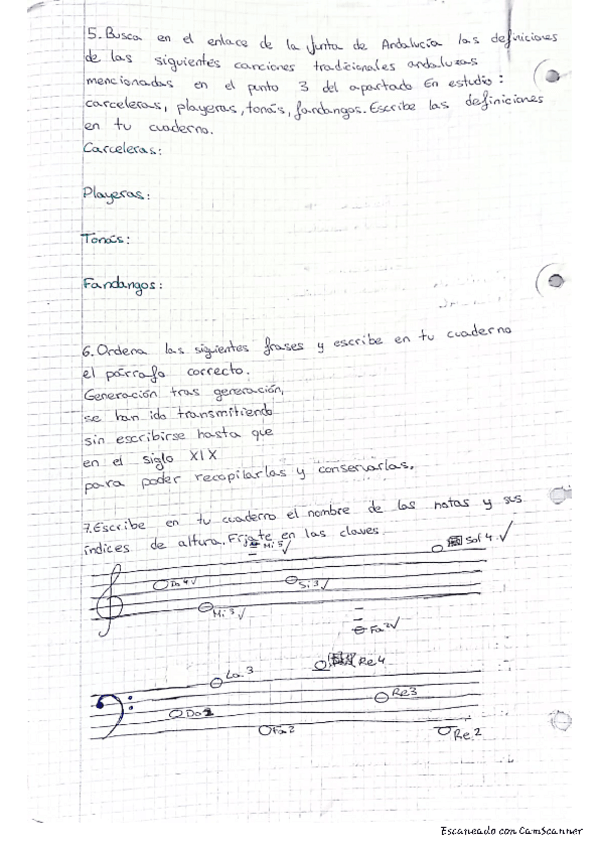 5. Busca en el enlace de la Junta de Andalucía las definiciones
de las siguientes canciones tradicionales andaluzas
mencionadas en el punto 3 del apartado En estudio:
carceleras, playeras, tonás, fandangos. Escribe las definiciones
en tu cuaderno.
Carceleras:
Playeras:
Tonás:
Fandangos:
6. Ordena las siguientes frases y escribe en tu cuaderno
el párrafo correcto.
Generación tras generación,
se han ido transmitiendo
sin escribirse hasta que
en el siglo XIX
para poder recopilarlas y conservarlas.
7. Escribe en tu cuaderno el nombre de las notas y sus
índices de altura. Fijate en las claves.
Mi 5 ✓
Sol 4 ✓
Do 4 ✓
Si 3 ✓
Mi 3 ✓
Fa 2 ✓
Re 4
La 3
Re 3
Do
Fa 2
Re 2
Escaneado con CamScanner